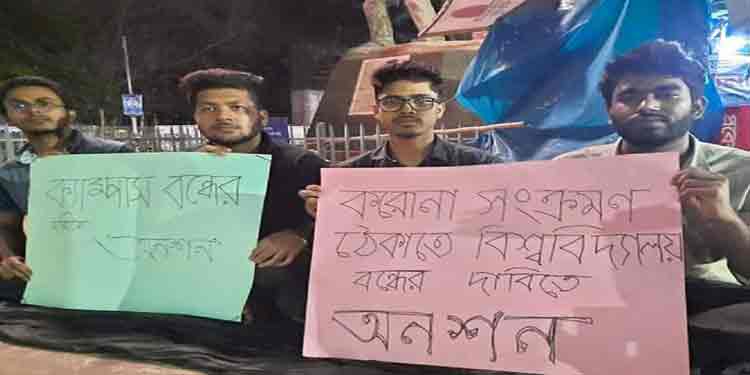 ক্যাম্পাস বন্ধের
অনশন
করোনা সংক্রমণ
ঠেকাতে বিশ্ববিদ্যালয়
বন্ধের দাবিতে
অনশন